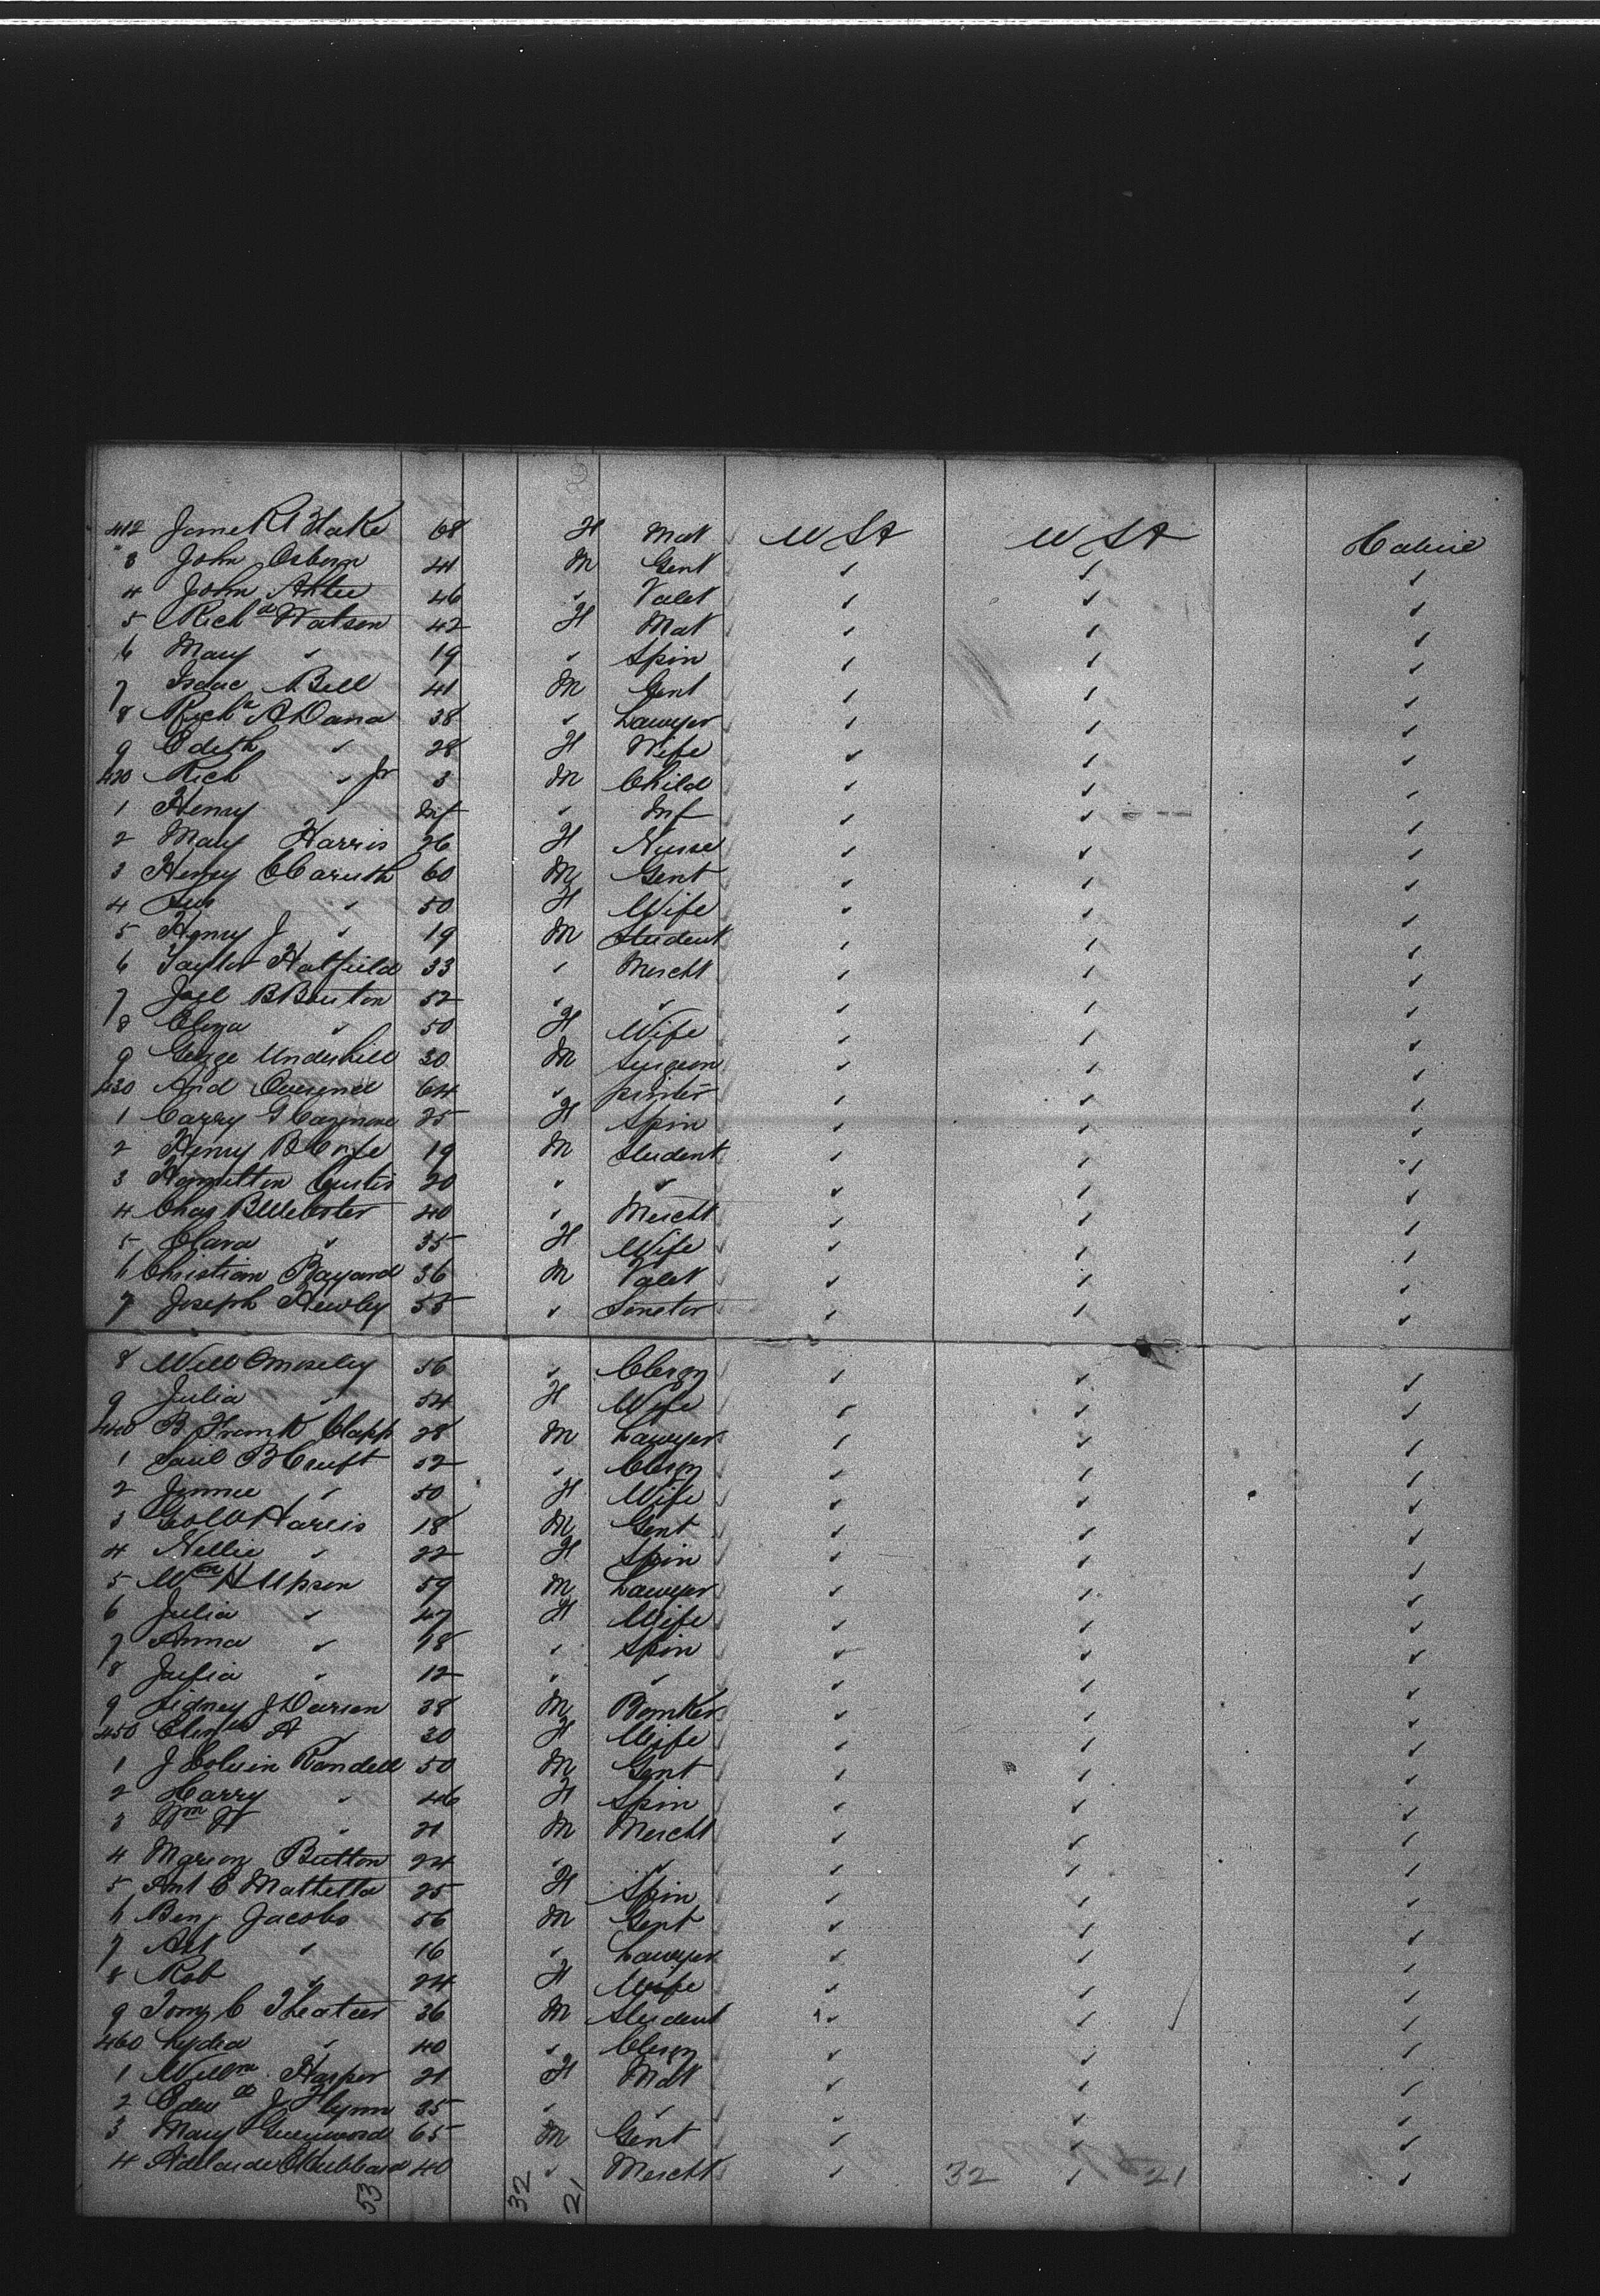 412 Jane R Blake 68 F Mat U St U St Cabin
3 John Osborn 41 M Gent ✓ ✓ ✓
4 John 46 ✓ Valet ✓ ✓ ✓
5 Richd Watson 42 F Mat ✓ ✓ ✓
6 Mary ✓ 19 ✓ Spin ✓ ✓ ✓
7 Isaac Bell 41 M Gent ✓ ✓ ✓
8 Richd Dana 38 ✓ Lawyer ✓ ✓ ✓
9 Edith ✓ 28 F Wife ✓ ✓ ✓
420 Rich ✓ Jr 3 M Child ✓ ✓ ✓
1 Henry ✓ Inf ✓ Inf ✓ ✓ ✓
2 Mary Harris 26 F Nurse ✓ ✓ ✓
3 Henry Caruth 60 M Gent ✓ ✓ ✓
4 Sus ✓ 50 F Wife ✓ ✓ ✓
5 Henry J ✓ 19 M Student ✓ ✓ ✓
6 Taylor Hatfield 33 ✓ Mercht ✓ ✓ ✓
7 Joel B 52 ✓ ✓ ✓ ✓ ✓
8 Eliza ✓ 50 F Wife ✓ ✓ ✓
9 George Underhill 30 M Surgeon ✓ ✓ ✓
430 And 64 ✓ printer ✓ ✓ ✓
1 Carry G 25 F Spin ✓ ✓ ✓
2 Henry B 19 M Student ✓ ✓ ✓
3 Hamilton Curtis 20 ✓ ✓ ✓ ✓ ✓
4 Chas B Webster 40 ✓ Mercht ✓ ✓ ✓
5 Clara ✓ 35 F Wife ✓ ✓ ✓
6 Christian Bayard 36 M Valet ✓ ✓ ✓
7 Joseph Hewley 55 ✓ Senetor ✓ ✓ ✓
8 Will Moseley 56 ✓ Clergy ✓ ✓ ✓
9 Julia ✓ 54 F Wife ✓ ✓ ✓
440 B Frank Clapp 28 M Lawyer ✓ ✓ ✓
1 Saul B Cruft 52 ✓ Clergy ✓ ✓ ✓
2 Jennie ✓ 50 F Wife ✓ ✓ ✓
3 Geo W Harris 18 M Gent ✓ ✓ ✓
4 Nellie ✓ 22 F Spin ✓ ✓ ✓
5 Wm H Upson 59 M Lawyer ✓ ✓ ✓
6 Julia ✓ 47 F Wife ✓ ✓ ✓
7 Anna ✓ 18 ✓ Spin ✓ ✓ ✓
8 Julia ✓ 12 ✓ ✓ ✓ ✓ ✓
9 Sidney J 38 M Banker ✓ ✓ ✓
450 A ✓ 30 F Wife ✓ ✓ ✓
1 J Colvin Randell 50 M Gent ✓ ✓ ✓
2 Harry ✓ 46 F Spin ✓ ✓ ✓
3 Wm H ✓ 21 M Mercht ✓ ✓ ✓
4 Marion Button 24 ✓ ✓ ✓ ✓ ✓
5 Ant C 25 F Spin ✓ ✓ ✓
6 Benj Jacobs 56 M Gent ✓ ✓ ✓
7 Art ✓ 16 ✓ Lawyer ✓ ✓ ✓
8 Rob ✓ 24 F Wife ✓ ✓ ✓
9 Tomy C 36 M Student ✓ ✓ ✓
460 Lydia ✓ 40 ✓ Clergy ✓ ✓ ✓
1 Willm Harper 21 F Mat ✓ ✓ ✓
2 Edwd J Flynn 35 ✓ ✓ ✓ ✓ ✓
3 Mary Greenwood 65 M Gent ✓ ✓ ✓
4 Adelaide Hubbard 40 ✓ Mercht ✓ 32 ✓ 21 ✓
53 32 21